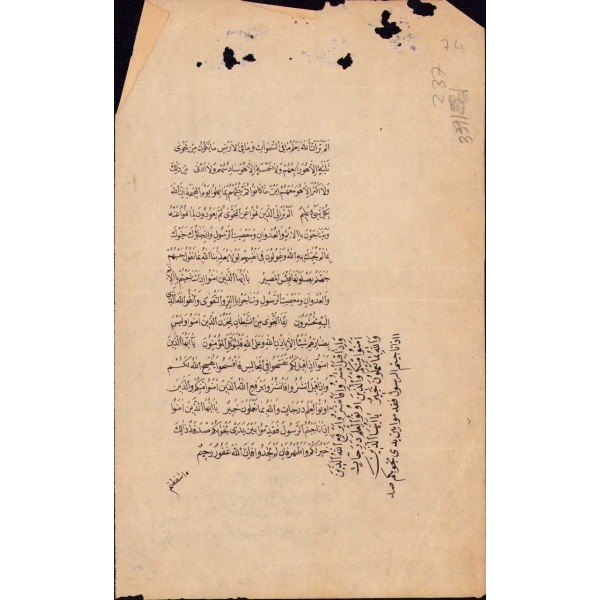 الم تر ان الله يعلم ما في السموات وما في الارض ما يكون من نجوى
ثلثة الا هو رابعهم ولا خمسة الا هو سادسهم ولا ادنى من ذلك
ولا اكثر الا هو معهم اين ما كانوا ثم ينبئهم بما عملوا يوم القيمة ان الله
بكل شيء عليم الم تر الى الذين نهوا عن النجوى ثم يعودون لما نهوا عنه
ويتناجون بالاثم والعدوان ومعصيت الرسول واذا جاؤك حيوك
بما لم يحيك به الله ويقولون في انفسهم لولا يعذبنا الله بما نقول حسبهم
جهنم يصلونها فبئس المصير يا ايها الذين امنوا اذا تناجيتم فلا
والعدوان ومعصيت الرسول وتناجوا بالبر والتقوى واتقوا الله الذي
اليه تحشرون انما النجوى من الشيطان ليحزن الذين امنوا وليس
بضارهم شيئا الا باذن الله وعلى الله فليتوكل المؤمنون يا ايها الذين
امنوا اذا قيل لكم تفسحوا في المجالس فافسحوا يفسح الله لكم
واذا قيل انشزوا فانشزوا يرفع الله الذين امنوا منكم والذين
اوتوا العلم درجات والله بما تعملون خبير يا ايها الذين امنوا
اذا ناجيتم الرسول فقدموا بين يدي نجويكم صدقة ذلك
خير لكم واطهر فان لم تجدوا فان الله غفور رحيم
ءاشفقتم
واذا قيل انشزوا فانشزوا يرفع الله الذين
امنوا منكم والذين اوتوا العلم درجات
والله بما تعملون خبير يا ايها الذين
اذا ناجيتم الرسول فقدموا بين يدي نجويكم صد
237
74
339